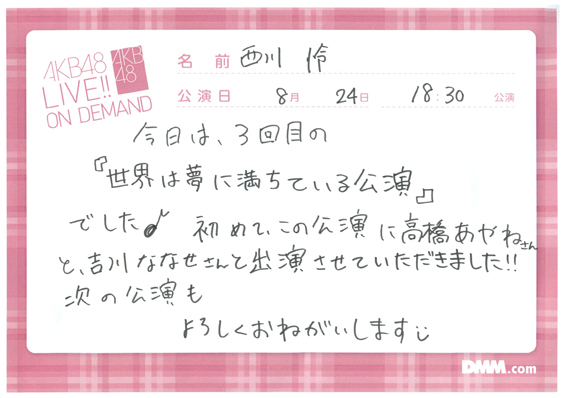 AKB48
LIVE!!
ON DEMAND
AKB
48
名 前 西川 怜
公演日 8月 24日 18:30 公演
今日は、3回目の
『世界は夢に満ちている公演』
でした♪ 初めて、この公演に高橋あやねさん
と、吉川ななせさんと出演させていただきました!!
次の公演も
よろしくおねがいします
DMM.com